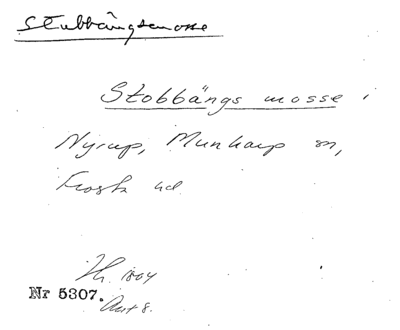 Stubbängsmosse
Stobbängs mosse
Nyrup, Munkarp sn,
Frosta hd
1804
Nr 5307. Akt 8.